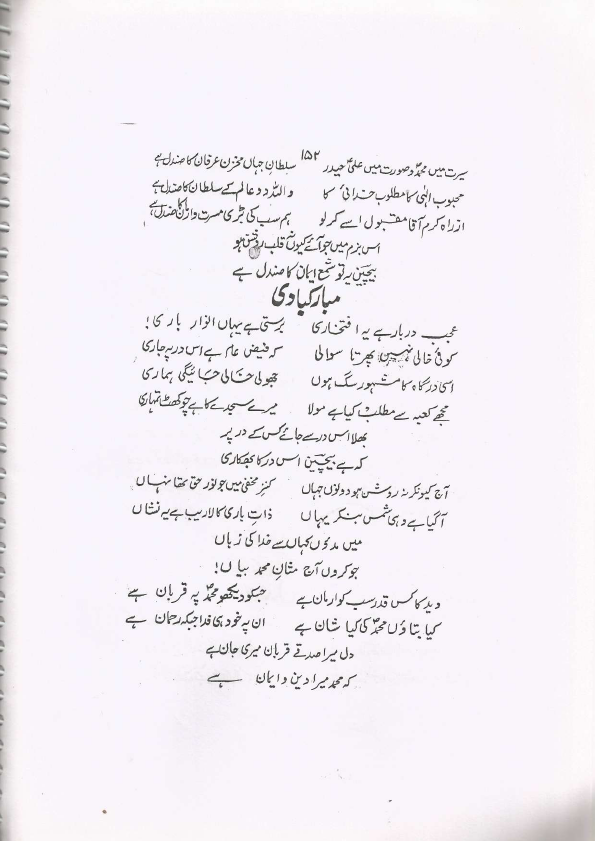 ۱۵۲
سیرت میں محمدؐ و صورت میں علیؑ حیدر سلطانِ جہاں مخزن عرفان کا صندل ہے
محبوب الٰہی کا مطلوب خدائی کا واللہ دو عالم کے سلطان کا صندل ہے
از راہ کرم آقا مقبول اسے کر لو ہم سب کی بڑی مسرت و کا صندل ہے
اس بزم میں جو آئے کیوں نہ قلب روشن ہو
بیچینؔ یہ تو شمع ایمان کا صندل ہے
مبارکبادی
عجب دربار ہے یہ افتخاری برستی ہے یہاں انوار باری !
کوئی خالی نہیں پھرتا سوالی کہ فیض عام ہے اس در پہ جاری
اسی درگاہ کا مشہور سگ ہوں جھولی خالی جائیگی ہماری
مجھے کعبہ سے مطلب کیا ہے مولا میرے سجدے کا ہے چوکھٹ تمہاری
بھلا اس در سے جائے کس کے در پر
کہ ہے بیچینؔ اس در کا بھکاری
آج کیونکر نہ روشن ہو دولوں جہاں کنزِ مخفی میں جو نور حق تھا نہاں
آگیا ہے وہی شمس بنکر یہاں ذاتِ باری کا لاریب ہے یہ نشاں
میں مدؤں کہاں سے خدا کی زباں
جو کروں آج شانِ محمد بیاں !
دید کا کس قدر سب کو ارمان ہے جبکو دیکھو محمدؐ پہ قربان ہے
کیا بتاؤں محمدؐ کی کیا شان ہے ان پہ خود ہی فدا جبکہ رحمان ہے
دل میرا صدقے قربان میری جان ہے
کہ محمد میرا دین و ایمان ہے